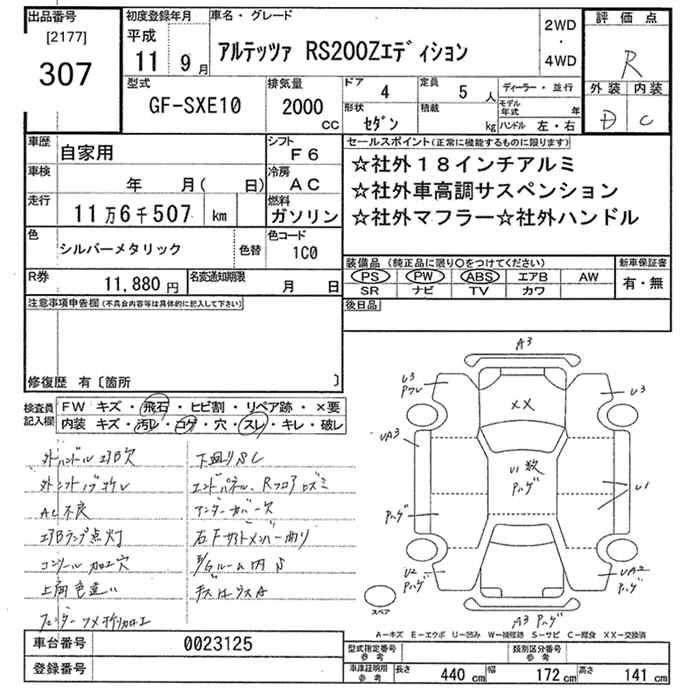 出品番号 初度登録年月 車名・グレード 2WD 評価点
[2177] 平成 ・
307 11 9月 アルテッツァ RS200Zエディション 4WD R
型式 排気量 ドア 4 定員 5人 ディーラー・並行 外装 内装
GF-SXE10 2000 cc 形状 セダン 積載 kg モデル年式 年 D C
ハンドル 左・右
車歴 自家用 シフト F6 セールスポイント(正常に機能するものに限ります)
車検 年 月( 日) 冷房 AC ☆社外18インチアルミ
☆社外車高調サスペンション
走行 11万6千507 km 燃料 ガソリン ☆社外マフラー☆社外ハンドル
色 シルバーメタリック 色替 色コード 1C0
装備品(純正品に限り〇をつけてください) 新車保証書
R券 11,880円 名変通知期限 月 日 PS PW ABS エアB AW 有・無
SR ナビ TV カワ
注意事項申告欄(不具合内容等は具体的に記入して下さい) 後日品
修復歴 有〔箇所 〕
検査員記入欄 FW キズ・飛石・ヒビ割・リペア跡・×要
内装 キズ・汚レ・コゲ・穴・スレ・キレ・破レ
外ハンドル エアB欠 下廻りSC
外シフトノブ折レ エンドパネル、Rフロアヒズミ
AC不良 アンダーカバー欠
エアBランプ点灯 右Fサイドメンバー曲り
コンソール加工穴 E/Gルーム内S
ガラスA
フェンダーツメ折加工
A3
U3 Pハゲ
U3
XX
UA3
U1数 Pハゲ
U1
Pハゲ
U2 Pハゲ
UA2 Pハゲ
A3 Pハゲ
スペア
A-キズ E-エクボ U-凹み W-補修跡 S-サビ C-腐食 XX-交換済
車台番号 0023125 型式指定番号 参考 類別区分番号 参考
登録番号 車庫証明用 参考 長さ 440 cm 幅 172 cm 高さ 141 cm